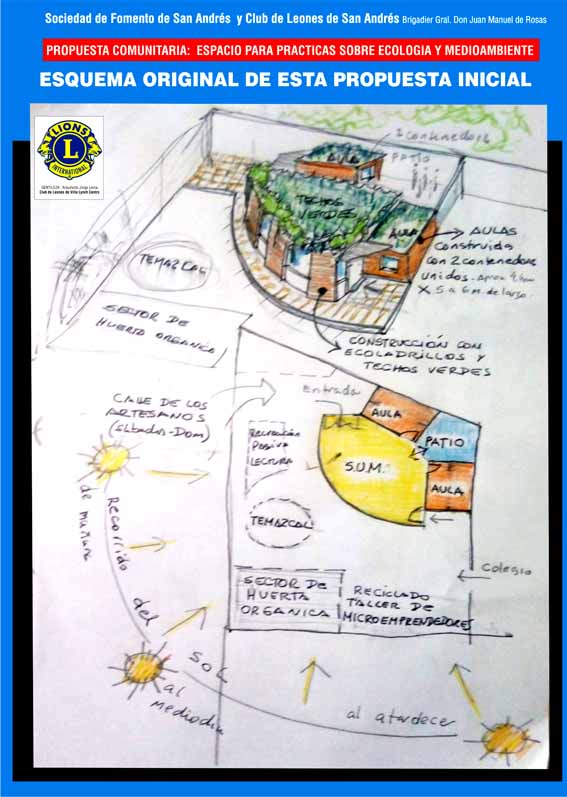 Sociedad de Fomento de San Andrés y Club de Leones de San Andrés Brigadier Gral. Don Juan Manuel de Rosas
PROPUESTA COMUNITARIA: ESPACIO PARA PRACTICAS SOBRE ECOLOGIA Y MEDIOAMBIENTE
ESQUEMA ORIGINAL DE ESTA PROPUESTA INICIAL
LIONS
L
INTERNATIONAL
GENTILEZA: Arquitecto Jorge
Club de Leones de Villa Lynch Centro
2 contenedores
AULA
PATIO
TECHOS
VERDES
AULA
AULAS
Construida
con 2 contenedores
unidos.
X 5 a 6 m. de largo.
TEMAZCAL
SECTOR DE
HUERTA ORGANICA
CONSTRUCCIÓN CON
ECOLADRILLOS Y
TECHOS VERDES
CALLE DE LOS
ARTESANOS
(Sábados-Dom)
Entrada
AULA
PATIO
Recreación
Pasiva
LECTURA
S.U.M.
AULA
TEMAZCAL
Colegio
SECTOR DE
HUERTA
ORGANICA
RECICLADO
TALLER DE
MICROEMPRENDEDORES
de mañana
Recorrido del
SOL
al mediodia
al atardecer